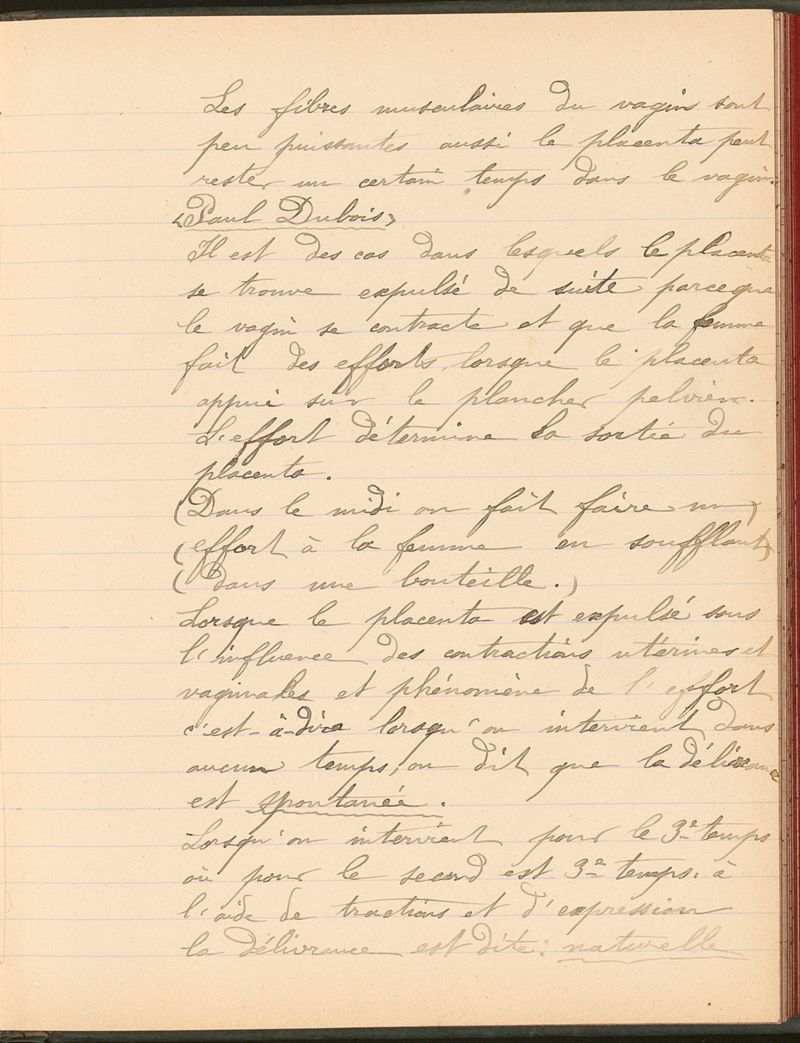 Les fibres musculaires du vagins sont
peu puissantes aussi le placenta peut
rester un certain temps dans le vagin.
(Paul Dubois)
Il est des cas dans lesquels le placenta
se trouve expulsé de suite parceque
le vagin se contracte et que la femme
fait des efforts, lorsque le placenta
appui sur le plancher pelvien.
L'effort détermine la sortie du
placenta.
(Dans le midi on fait faire un)
(effort à la femme en soufflant)
(dans une bouteille.)
Lorsque le placenta est expulsé sous
l'influence des contractions utérines et
vaginales et phénomène de l'effort
c'est-à-dire lorsqu'on intervient dans
aucun temps, on dit que la délivrance
est spontanée.
Lorsqu'on intervient pour le 3e temps
où pour le second est 3e temps, à
l'aide de tractions et d'expression
la délivrance est dite: naturelle